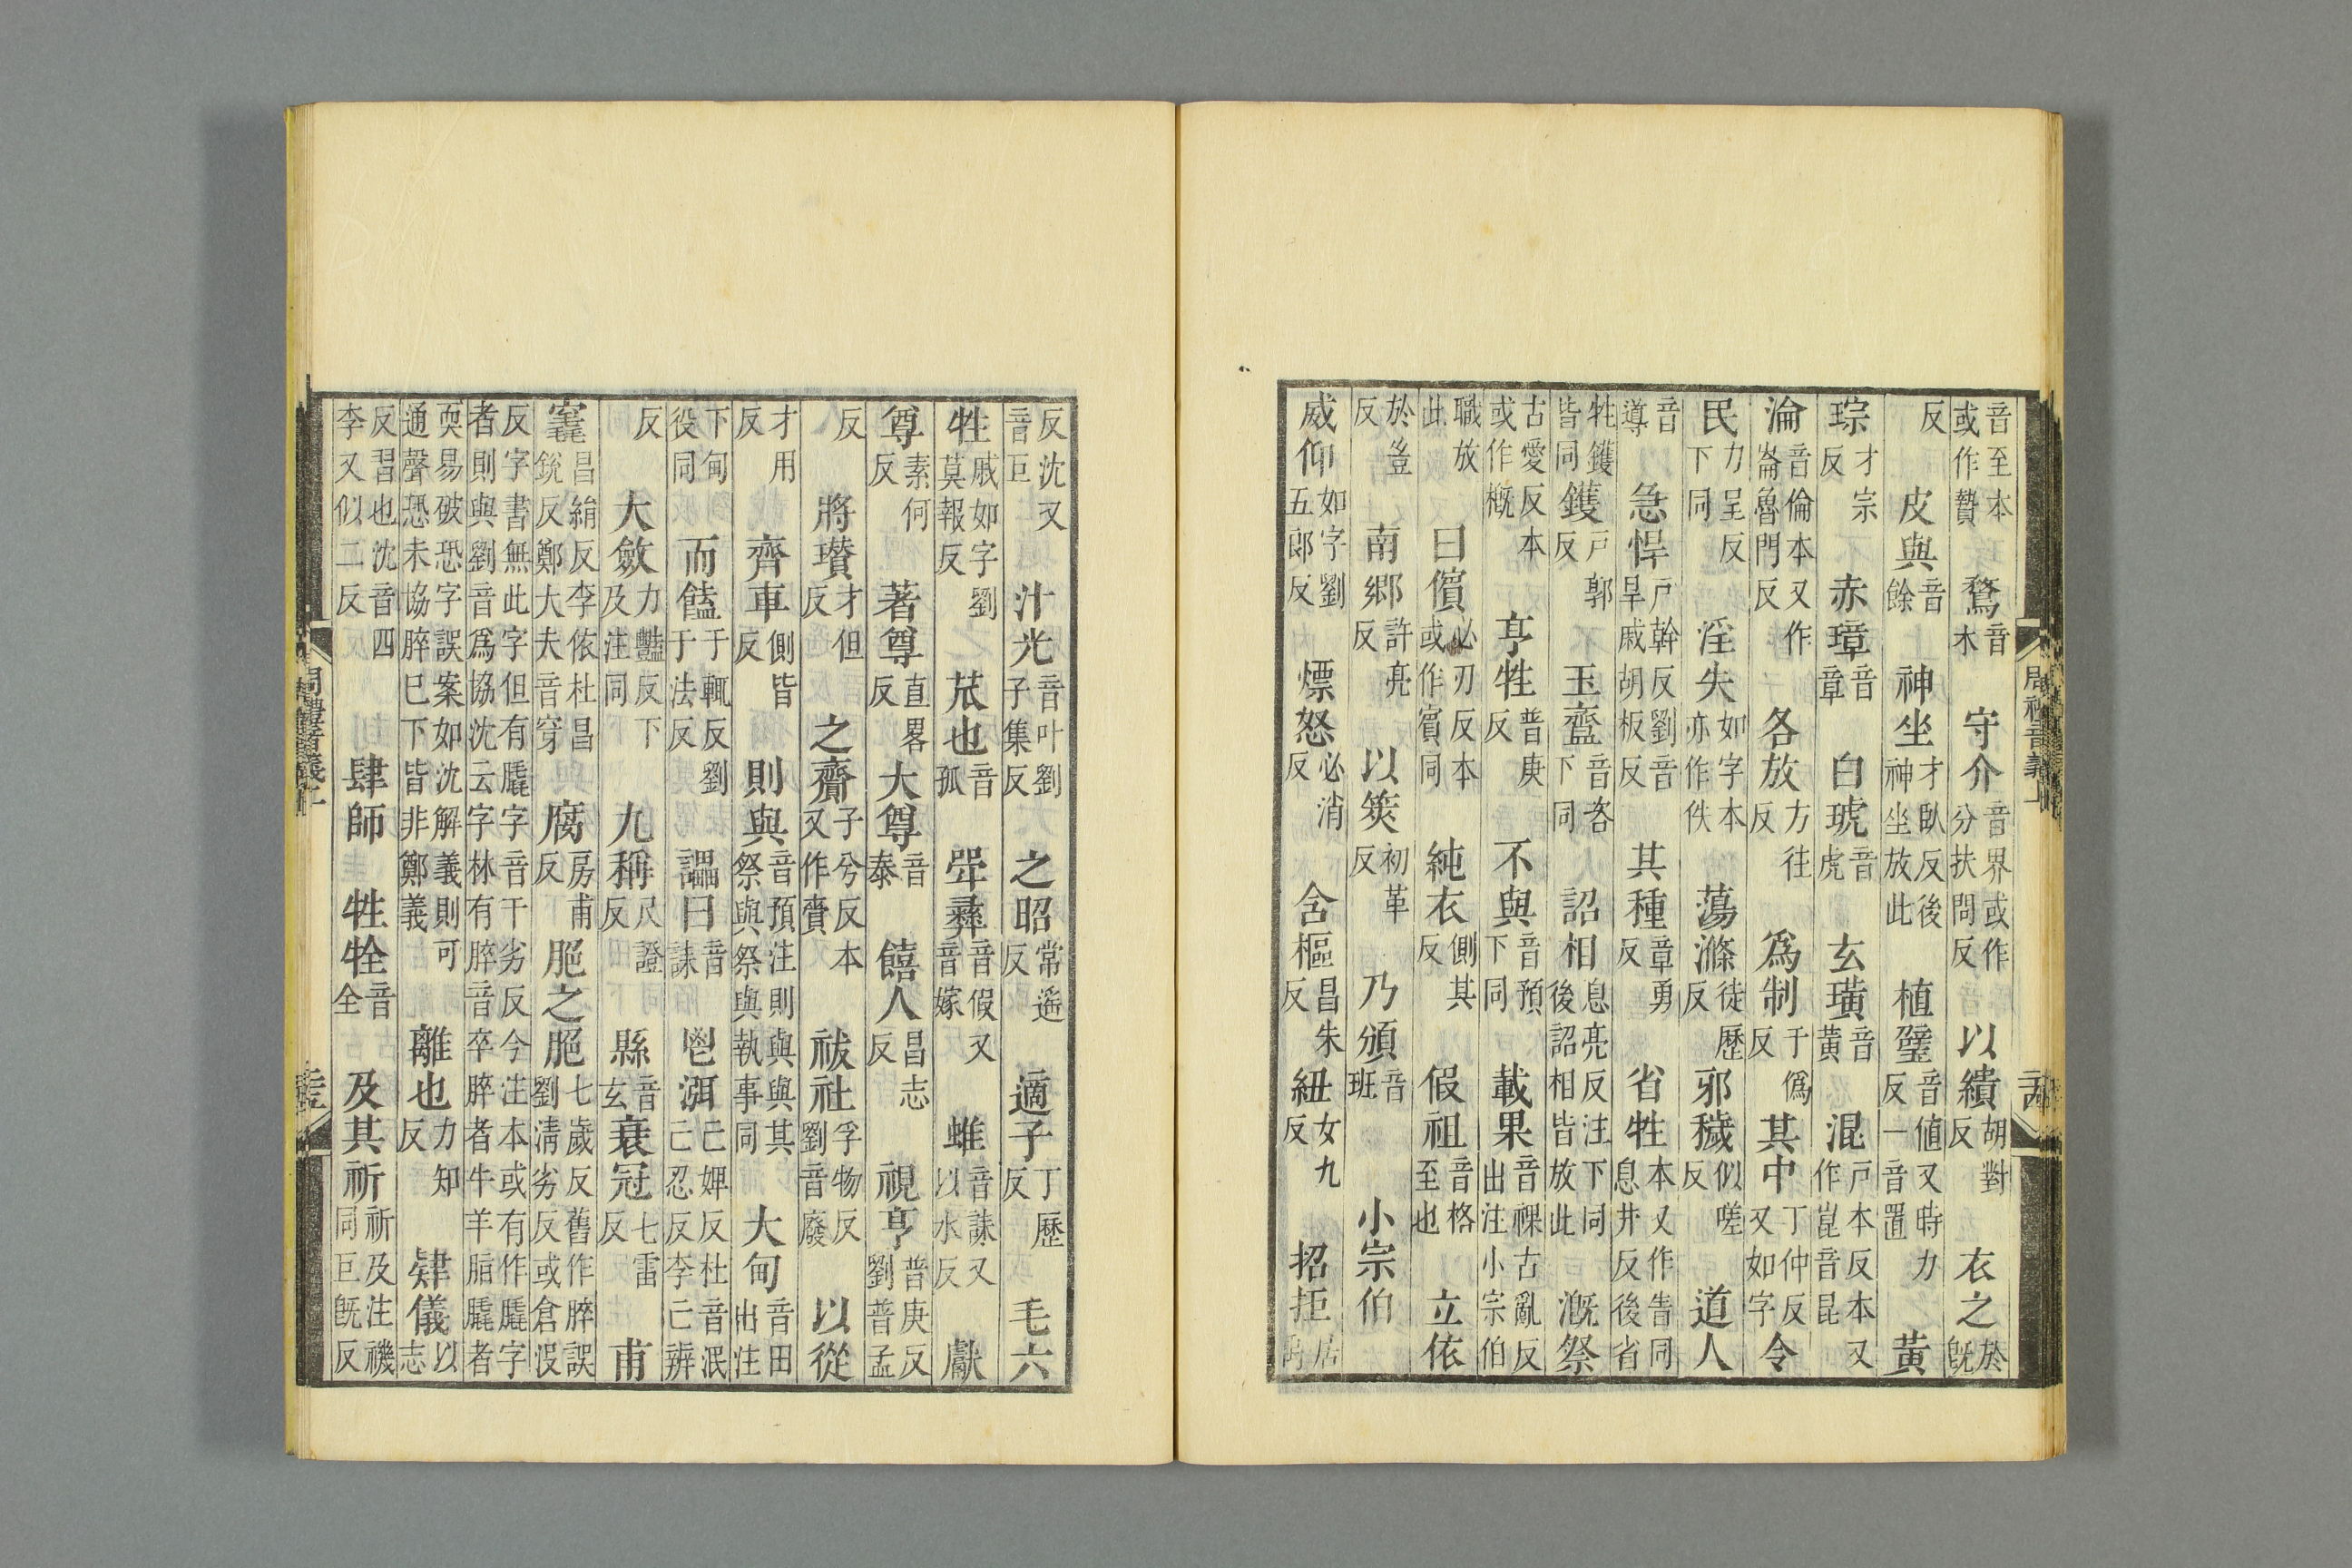 周禮音義上
音至本或作贄 鶩音木 守介音界或作分扶問反 以繢胡對反 衣之於旣
反 皮與音餘 神坐才臥反後神坐放此 植璧音値又時力反一音置 黃
琮才宗反 赤璋音章 白琥音虎 玄璜音黃 混戶本反本又作崑音昆
淪音倫本又作崙魯門反 各放方往反 爲制于僞反 其中丁仲反又如字 令
民力呈反下同 淫失如字本亦作佚 蕩滌徒歷反 邪穢似嗟反 道人
音導 怠悍戶幹反劉音旱戚胡板反 其種章勇反 省牲本又作眚同息井反後省
牲鑊皆同 鑊戶郭反 玉齍音咨下同 詔相息亮反注下同後詔相皆放此 溉祭
古愛反本或作概 亨牲普庚反 不與音預下同 載果音祼古亂反出注小宗伯
職放此 曰儐必刃反本或作賓同 純衣側其反 假祖音格至也 立依
於豈反 南鄉許亮反 以筴初革反 乃頒音班 小宗伯
威仰如字劉五郎反 熛怒必消反 含樞昌朱反 紐女九反 招拒居
反沈又音巨 汁光音叶劉子集反 之昭常遙反 適子丁歷反 毛六
牲戚如字劉莫報反 苽也音孤 斝彝音假又音嫁 蜼音誄又以水反 獻
尊素何反 著尊直畧反 大尊音泰 饎人昌志反 視亨普庚反劉普孟
反 將瓚才但反 之齎子兮反本又作賷 祓社孚物反劉音廢 以從
才用反 齊車側皆反 則與音預注則與與其祭與祭與執事同 大甸音田出注
下甸役同 而饁于輒反劉于法反 讄曰音誄 鬯渳亡婢反杜音泯亡忍反李亡辨
反 大斂力豔反下及注同 九稱尺證反 縣音玄 衰冠七雷反 甫
竁昌絹反李依杜昌銳反鄭大夫音穿 腐房甫反 脃之脃七歲反舊作脺誤劉淸劣反或倉沒
反字書無此字但有膬字音千劣反今注本或有作膬字者則與劉音爲協沈云字林有脺音卒脺者牛羊脂膬者
耎易破恐字誤案如沈解義則可通聲恐未協脺已下皆非鄭義 離也力知反 肄儀以志
反習也沈音四李又似二反 肆師 牲牷音全 及其祈祈及注禨同巨旣反
周禮音義上